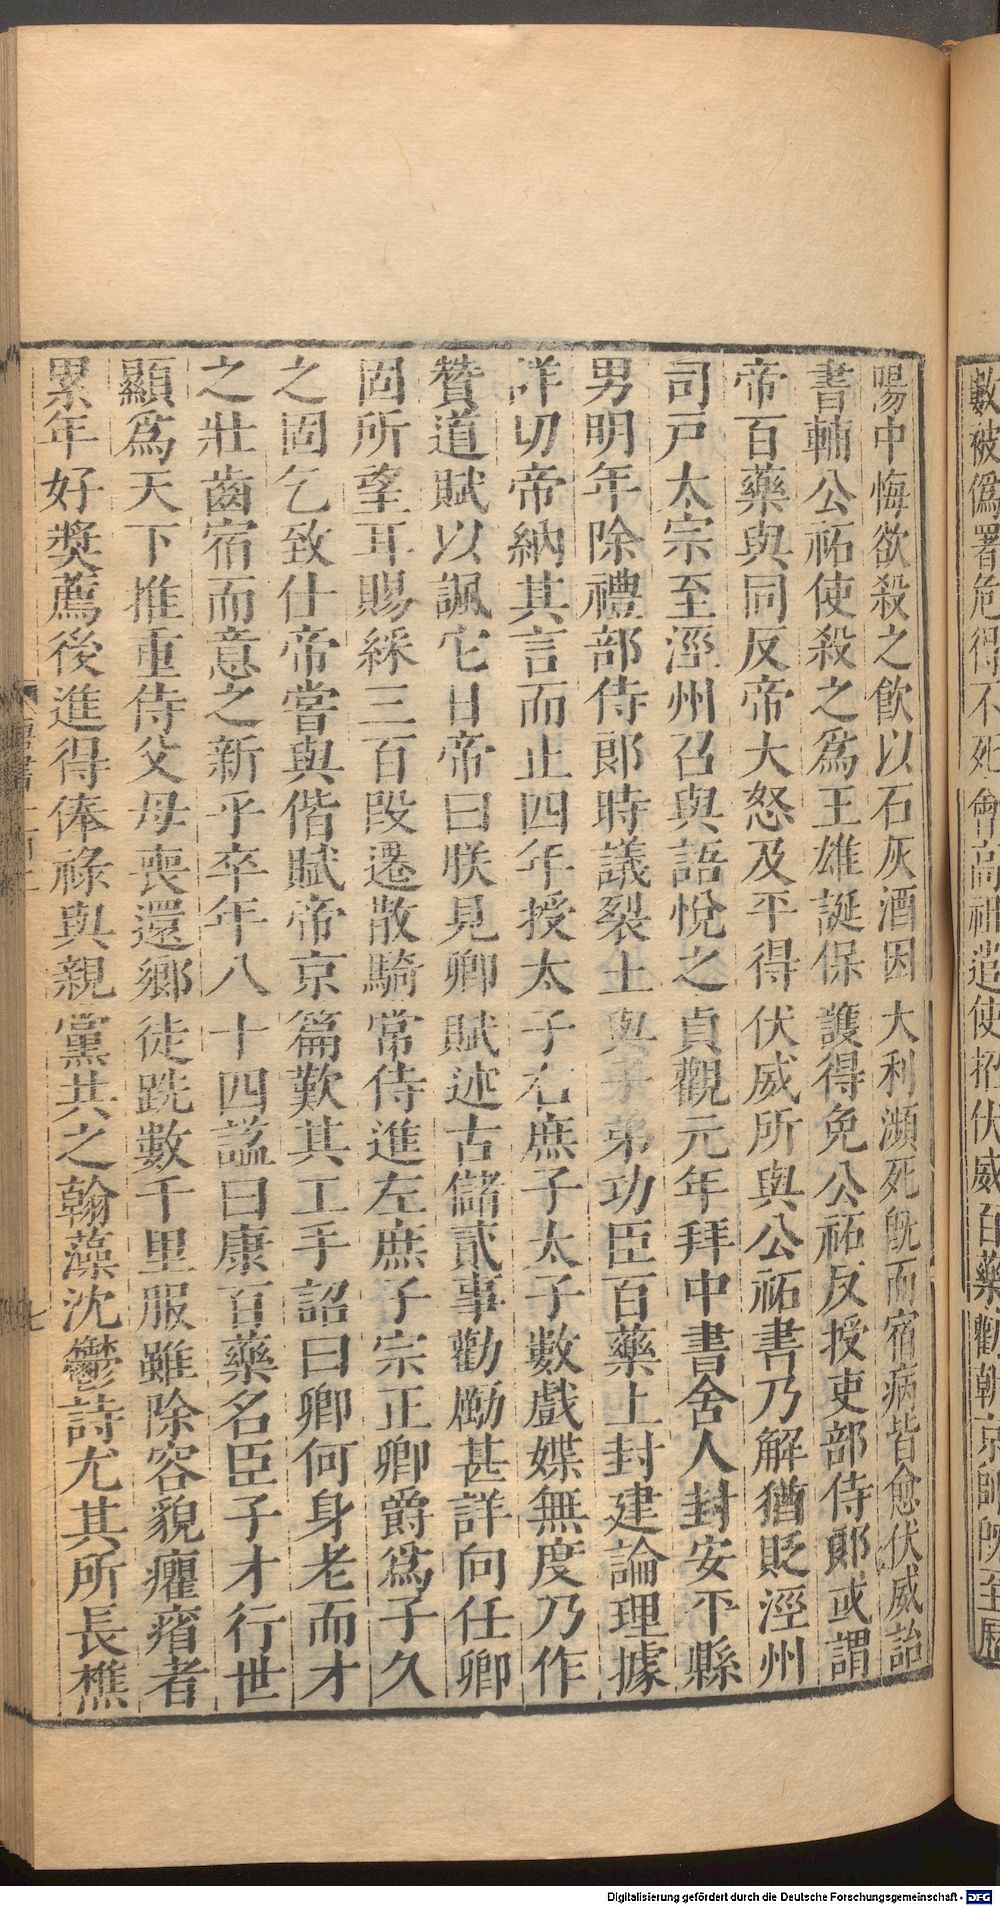 數被僞署危得不死會高祖遣使招伏威百藥勸朝京師旣至歷
陽中悔欲殺之飮以石灰酒因大利瀕死旣而宿病皆愈伏威詒
書輔公祏使殺之爲王雄誕保護得免公祏反授吏部侍郞或謂
帝百藥與同反帝大怒及平得伏威所與公祏書乃解猶貶涇州
司戸太宗至涇州召與語悅之貞觀元年拜中書舍人封安平縣
男明年除禮部侍郞時議裂土與子弟功臣百藥上封建論理據
詳切帝納其言而止四年授太子右庶子太子數戲媟無度乃作
贊道賦以諷它日帝曰朕見卿賦述古儲貳事勸勵甚詳向任卿
固所望耳賜綵三百段遷散騎常侍進左庶子宗正卿爵爲子久
之固乞致仕帝嘗與偕賦帝京篇歎其工手詔曰卿何身老而才
之壯齒宿而意之新乎卒年八十四謚曰康百藥名臣子才行世
顯爲天下推重侍父母喪還鄉徒跣數千里服雖除容貌癯瘠者
累年好獎薦後進得俸祿與親黨共之翰藻沈鬱詩尤其所長樵
七
Digitalisierung gefördert durch die Deutsche Forschungsgemeinschaft - DFG